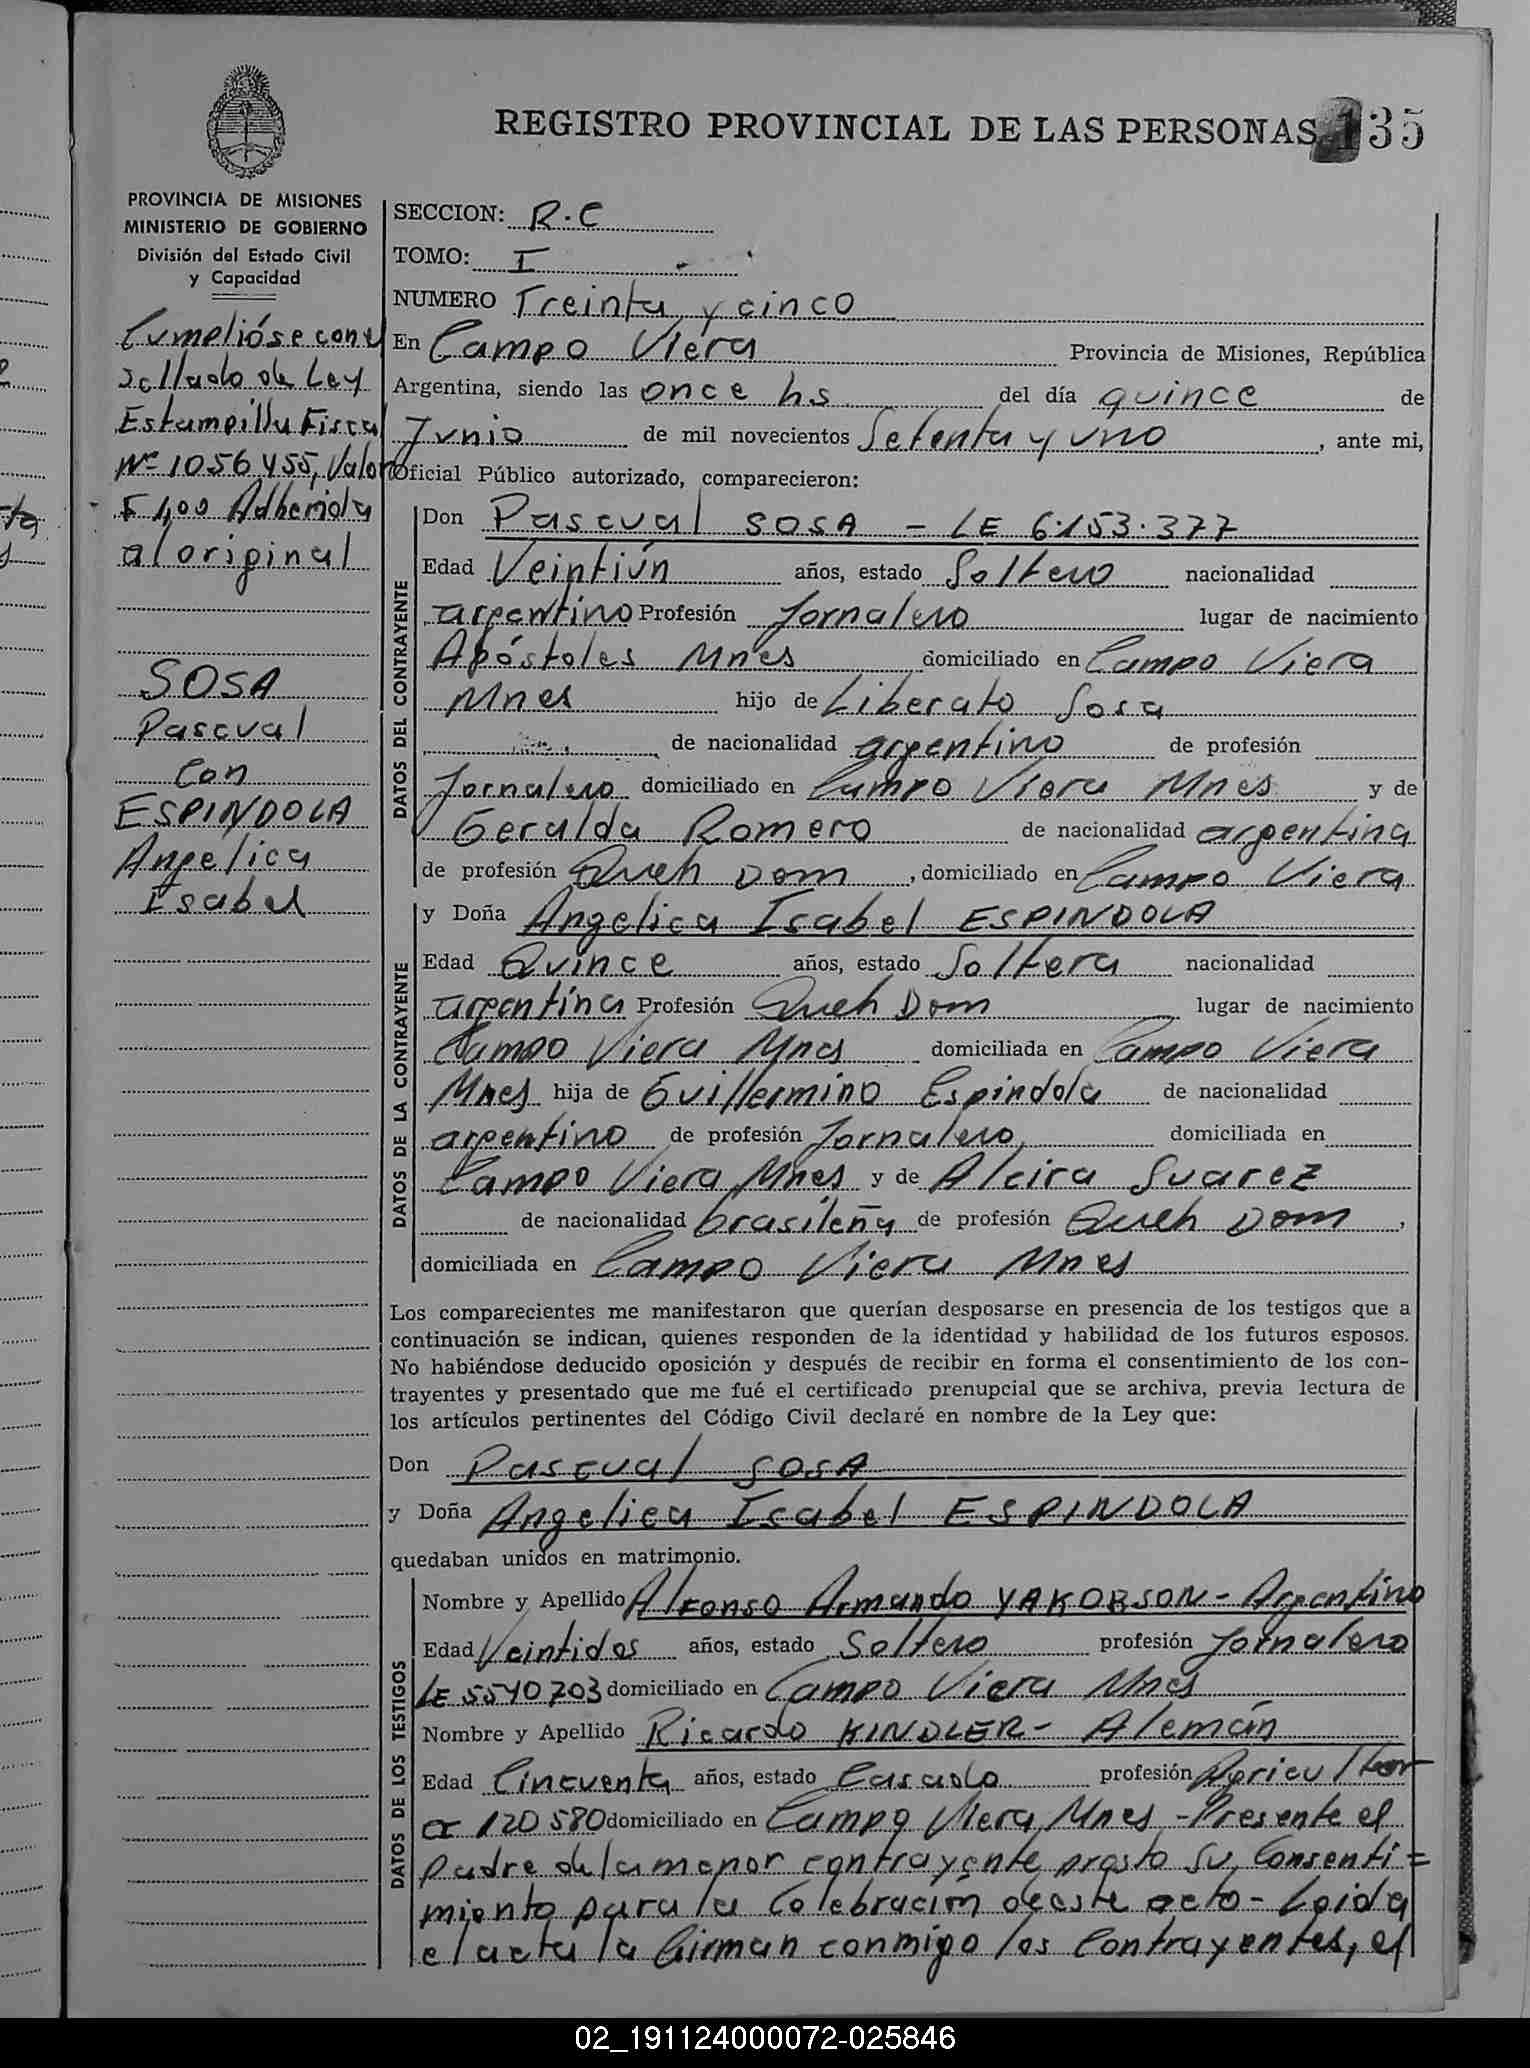 REGISTRO PROVINCIAL DE LAS PERSONAS 135
PROVINCIA DE MISIONES
MINISTERIO DE GOBIERNO
División del Estado Civil
y Capacidad
Cumplióse con el
sellado de Ley
Estampilla Fiscal
Nº 1056455, Valor
$ 1,00 Adherida
al original
SOSA
Pascual
Con
ESPINDOLA
Angelica
Isabel
SECCION: R.C
TOMO: I
NUMERO Treinta y cinco
En Campo Viera Provincia de Misiones, República
Argentina, siendo las once hs del día quince de
Junio de mil novecientos Setenta y uno, ante mi,
Oficial Público autorizado, comparecieron:
DATOS DEL CONTRAYENTE
Don Pascual SOSA - LE 6.153.377
Edad Veintiún años, estado Soltero nacionalidad
argentino Profesión Jornalero lugar de nacimiento
Apóstoles Mnes domiciliado en Campo Viera
Mnes hijo de Liberato Sosa
de nacionalidad argentino de profesión
Jornalero domiciliado en Campo Viera Mnes y de
Geralda Romero de nacionalidad argentina
de profesión Queh Dom, domiciliado en Campo Viera
DATOS DE LA CONTRAYENTE
y Doña Angelica Isabel ESPINDOLA
Edad Quince años, estado Soltera nacionalidad
argentina Profesión Queh Dom lugar de nacimiento
Campo Viera Mnes domiciliada en Campo Viera
Mnes hija de Guillermino Espindola de nacionalidad
argentino de profesión Jornalero, domiciliada en
Campo Viera Mnes y de Alcira Suarez
de nacionalidad brasileña de profesión Queh Dom,
domiciliada en Campo Viera Mnes
Los comparecientes me manifestaron que querían desposarse en presencia de los testigos que a
continuación se indican, quienes responden de la identidad y habilidad de los futuros esposos.
No habiéndose deducido oposición y después de recibir en forma el consentimiento de los con-
trayentes y presentado que me fué el certificado prenupcial que se archiva, previa lectura de
los artículos pertinentes del Código Civil declaré en nombre de la Ley que:
Don Pascual SOSA
y Doña Angelica Isabel ESPINDOLA
quedaban unidos en matrimonio.
DATOS DE LOS TESTIGOS
Nombre y Apellido Alfonso Armando YAKOBSON - Argentino
Edad Veintidos años, estado Soltero profesión Jornalero
LE 5540703 domiciliado en Campo Viera Mnes
Nombre y Apellido Ricardo KINDLER - Alemán
Edad Cincuenta años, estado Casado profesión Agricultor
CI 120580 domiciliado en Campo Viera Mnes - Presente el
padre de la menor contrayente presto su Consenti=
miento para la Celebración de este acto - Leida
el acta la firman conmigo los Contrayentes, el
02_191124000072-025846